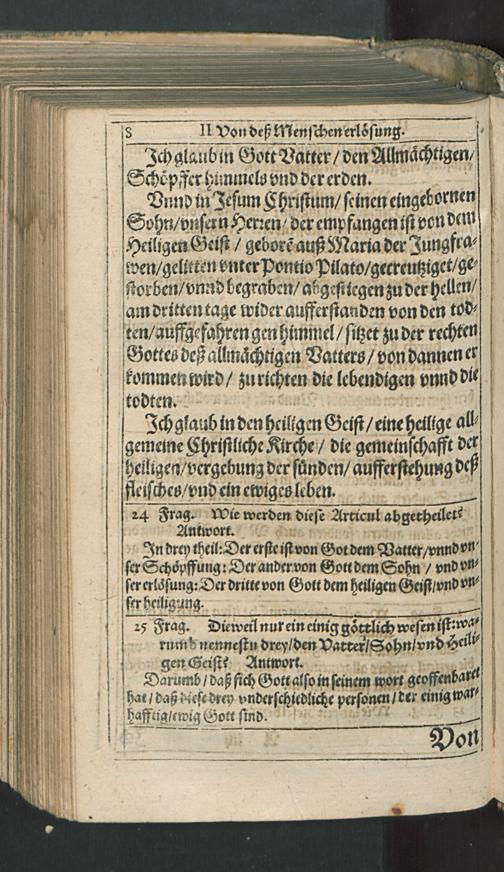 8 II Von deß Menschen erlösung.
Ich glaub in Gott Vatter / den Allmächtigen /
Schöpffer himmels vnd der erden.
Vnnd in Jesum Christum / seinen eingebornen
Sohn / vnsern Herren / der empfangen ist von dem
Heiligen Geist / geborē auß Maria der Jungfra-
wen / gelitten vnter Pontio Pilato / gecreutziget / ge-
storben / vnnd begraben / abgestiegen zu der hellen /
am dritten tage wider aufferstanden von den tod-
ten / auffgefahren gen himmel / sitzet zu der rechten
Gottes deß allmächtigen Vatters / von dannen er
kommen wird / zu richten die lebendigen vnnd die
todten.
Ich glaub in den heiligen Geist / eine heilige all-
gemeine Christliche Kirche / die gemeinschafft der
heiligen / vergebung der sünden / aufferstehung deß
fleisches / vnd ein ewiges leben.
24 Frag. Wie werden diese Articul abgetheilet?
Antwort.
In drey theil: Der erste ist von Got dem Vatter / vnnd vn-
ser Schöpffung: Der ander von Gott dem Sohn / vnd vn-
ser erlösung: Der dritte von Gott dem heiligen Geist / vnd vn-
ser heiligung.
25 Frag. Dieweil nur ein einig göttlich wesen ist: wa-
rumb nennestu drey / den Vatter / Sohn / vnd Heili-
gen Geist? Antwort.
Darumb / daß sich Gott also in seinem wort geoffenbaret
hat / daß diese drey vnderschiedliche personen / der einig war-
hafftig / ewig Gott sind.
Von